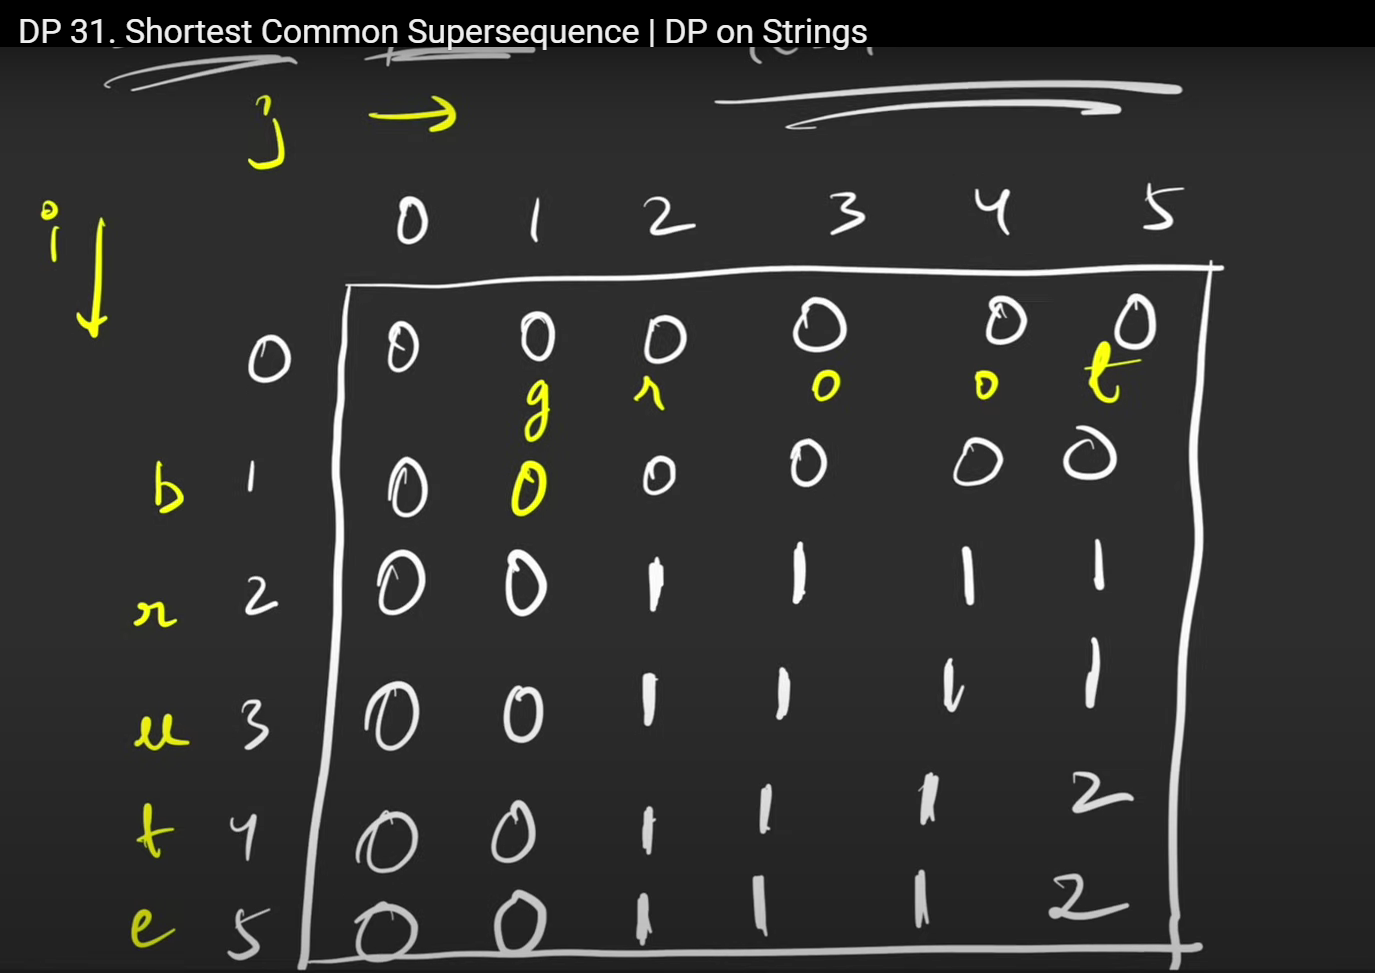 DP 31. Shortest Common Supersequence | DP on Strings
j →
i ↓
0 1 2 3 4 5
0 0 0 0 0 0 0
g r o o t
b 1 0 0 0 0 0 0
r 2 0 0 1 1 1 1
u 3 0 0 1 1 1 1
t 4 0 0 1 1 1 2
e 5 0 0 1 1 1 2